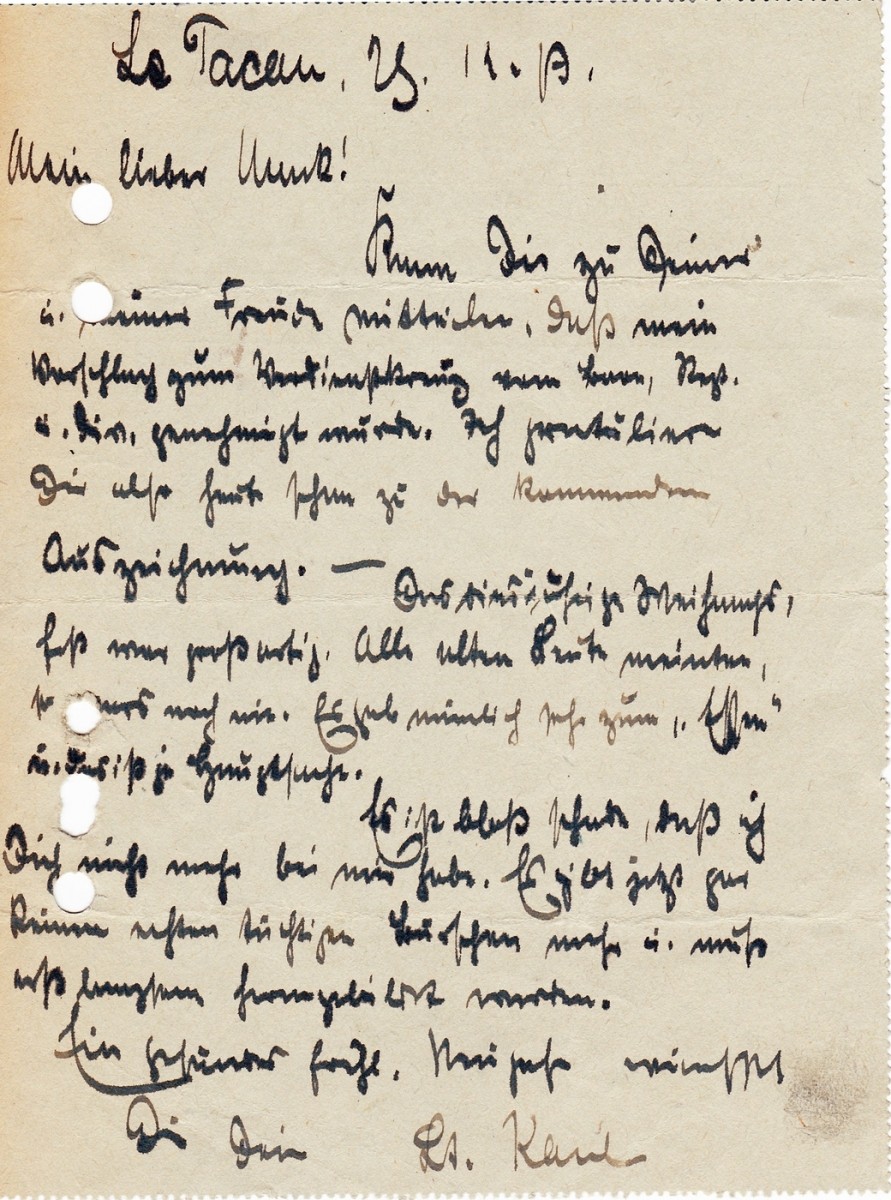 Le Tacon,
Mein lieber Munk!
Kann Dir zu Deiner
u. meiner Freude mitteilen, daß mein
Vorschlag zum Verdienstkreuz vom Baon, Regt.
u. Div. genehmigt wurde. Ich gratuliere
Dir also heute schon zu der kommenden
Auszeichnung. — Das diesjährige Weihnachts,
fest war großartig. Alle alten Leute meinten,
so wars noch nie. Es gab nämlich sehr zum „Essen“
u. das ist ja Hauptsache.
Es ist bloß schade, daß ich
Dich nicht mehr bei mir habe. Es gibt jetzt gar
keinen echten tüchtigen Burschen mehr u. muß
erst langsam herangebildet werden.
Ein gesundes fröhl. Neujahr wünscht
Dir Dein Lt.